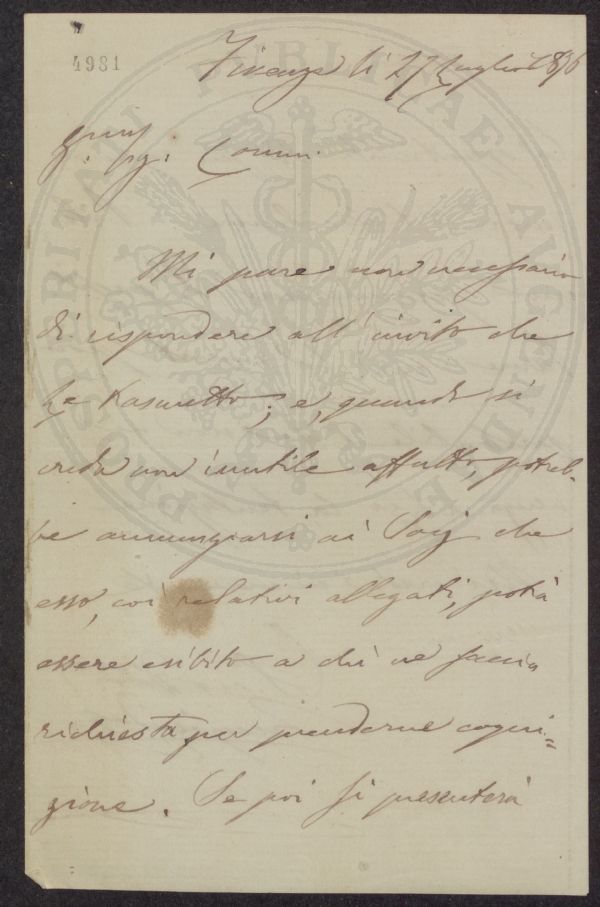 4981
Firenze li 27 Luglio 1896
Sig. Comm.
Mi pare non necessario
di rispondere all'invito che
Le trasmetto; e, quando si
creda non inutile affatto, potreb-
be annunziarsi ai Soci che
esso, coi relativi allegati, potrà
essere esibito a chi ne faccia
richiesta per prenderne cogni=
zione. Se poi si presenterà
PROSPERITATI PUBLICAE AUGENDAE